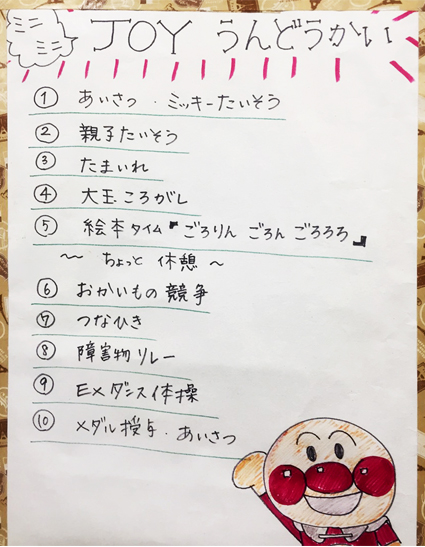 ミニミニ JOY うんどうかい
① あいさつ・ミッキーたいそう
② 親子たいそう
③ たまいれ
④ 大玉ころがし
⑤ 絵本タイム『ごろりん ごろん ころろろ』
～ ちょっと 休憩 ～
⑥ おかいもの 競争
⑦ つなひき
⑧ 障害物リレー
⑨ EXダンス体操
⑩ メダル授与・あいさつ